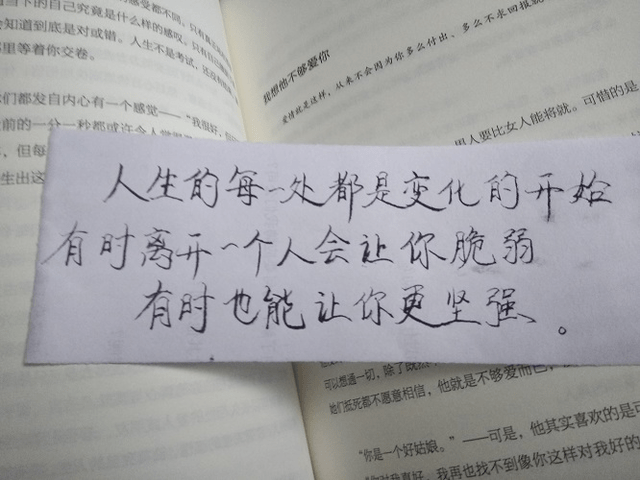 当下的自己究竟是什么样的感叹,只有
会知道到底是对或错。人生不是考试,
那里等着你交卷。
们都发自内心有一个感觉——“我很好,
生出这
我想他不够爱你
爱情就是这样,从来不会因为你多么付出、多么不求回报
男人要比女人能将就。可惜的是
人生的每一处都是变化的开始
有时离开一个人会让你脆弱
有时也能让你更坚强。
可以想通一切,除了既然
她们抵死都不愿意相信,他就是不够爱而已,
“你是一个好姑娘。”——可是,他其实喜欢的是可
我再也找不到像你这样对我好的